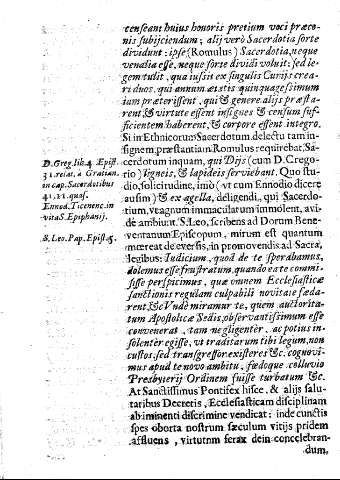 censeant huius honoris pretium voci præco-
nis subijciendum; alij verò Sacerdotia sorte
dividunt: ipse (Romulus) Sacerdotia, neque
venalia esse, neque sorte dividi voluit: sed le-
gem tulit, qua iussit ex singulis Curijs crea-
ri duos, qui annum ætatis quinquagesimum
iam præterissent, qui & genere alijs præsta-
rent, & virtute essent insignes & censum suf-
ficientem haberent, & corpore essent integro.
Si in Ethnicorum Sacerdotum delectu tam in-
signem, præstantiam Romulus requirebat, Sa-
cerdotum inquam, qui Dijs (cum D. Grego-
rio) ligneis, & lapideis serviebant. Quo stu-
dio, solicitudine, imò (ut cum Ennodio dicere
ausim) & ex agella, deligendi, qui Sacerdo-
tium, ut agnum immaculatum immolent, avi-
dè ambiunt. S. Leo, scribens ad Dorum Bene-
ventanum Episcopum, mirum est quantum
mœreat de eversis, in promovendis ad Sacra,
legibus: Iudicium, quod de te sperabamus,
dolemus esse frustratum, quando ea te commi-
sisse perspicimus, quæ omnem Ecclesiasticæ
sanctionis regulam culpabili novitate fœda-
rent, &c Unde miramur te, quem auctorita-
tum Apostolicæ Sedis, observantissimum esse
convenerat, tam negligentèr, ac potius in-
solentèr egisse, ut traditarum tibi legum, non
custos, sed transgressor existeres &c. cognovi-
mus apud te novo ambitu, fœdoque colluvio
Presbyterij Ordinem fuisse turbatum &c.
At Sanctissimus Pontifex hisce, & alijs salu-
taribus Decretis, Ecclesiasticam disciplinam
ab imminenti discrimine vendicat: inde cunctis
spes oborta nostrum sæculum vitijs pridem
affluens, virtutum ferax dein concelebran-
dum,
D. Greg. lib. 4. Epist.
31. relat. à Gratian.
in cap. Sacerdotibus
41. 11. quæs.
Ennod. Ticenenc. in
vita S. Epiphanij.
S. Leo. Pap. Epist. 5.